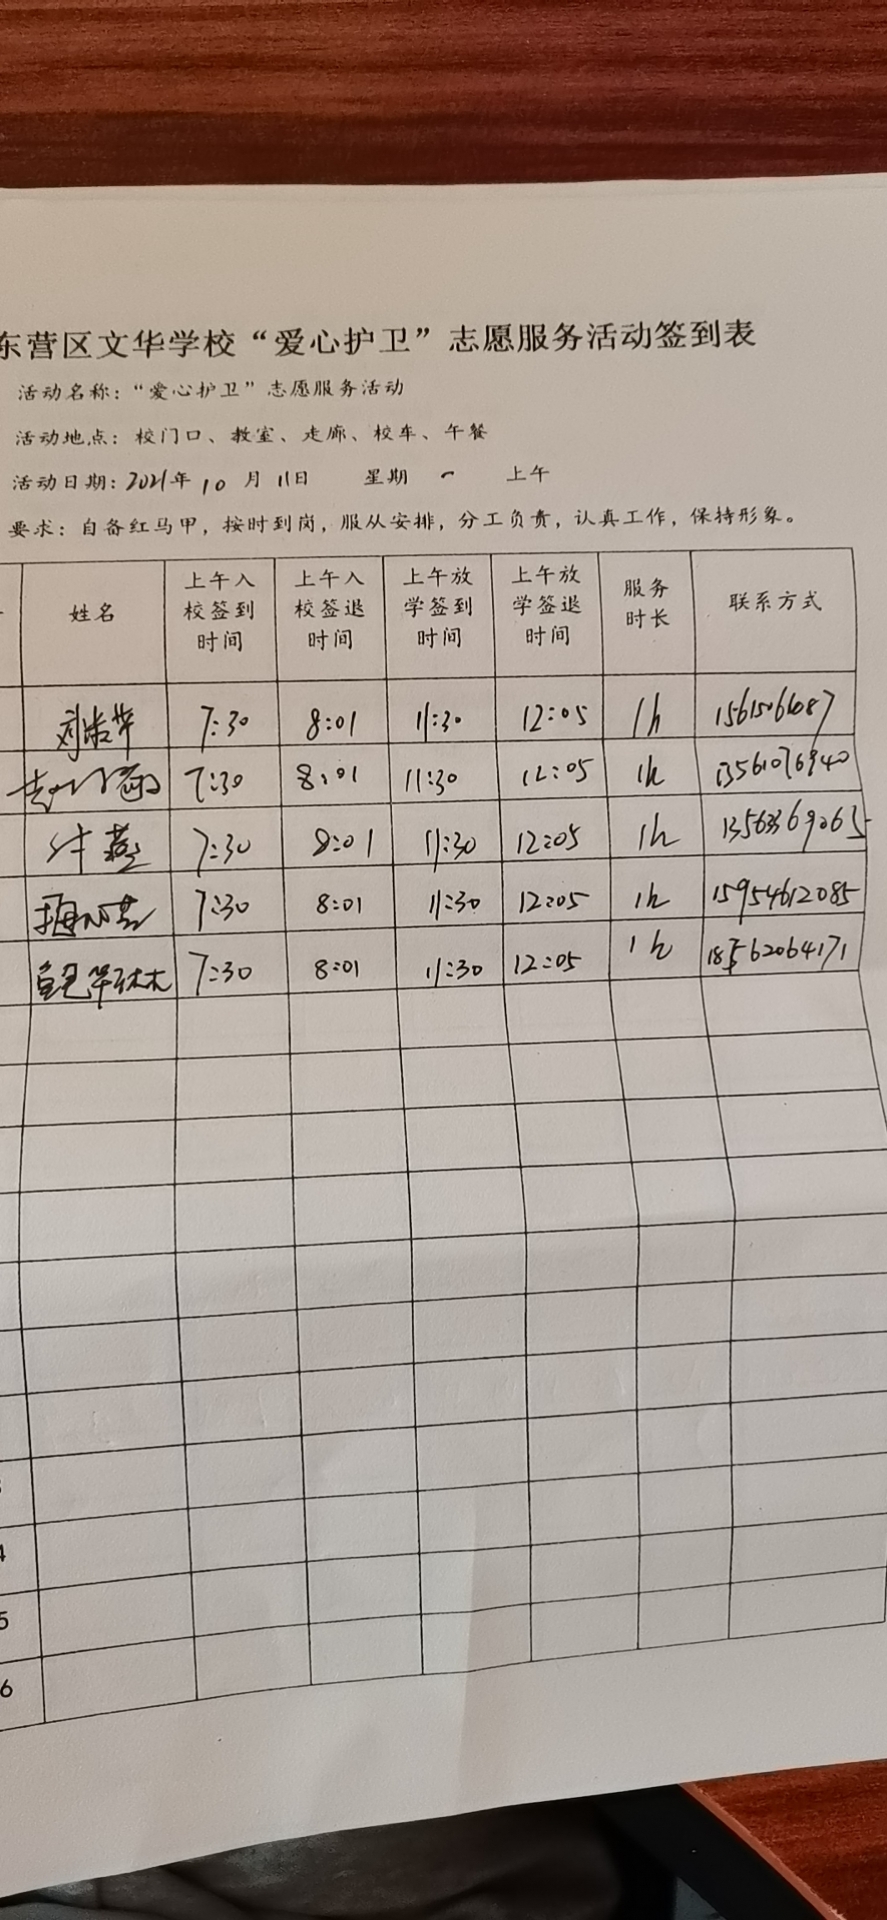 东营区文华学校“爱心护卫”志愿服务活动签到表
活动名称：“爱心护卫”志愿服务活动
活动地点：校门口、教室、走廊、校车、午餐
活动日期：2021年10月11日 星期一 上午
要求：自备红马甲，按时到岗，服从安排，分工负责，认真工作，保持形象。
姓名 上午入校签到时间 上午入校签退时间 上午放学签到时间 上午放学签退时间 服务时长 联系方式
7:30 8:01 11:30 12:05 1h
7:30 8:01 11:30 12:05 1h 13561076940
牛燕 7:30 8:01 11:30 12:05 1h
7:30 8:01 11:30 12:05 1h 15954612085
7:30 8:01 11:30 12:05 1h 18562064171
4
5
6